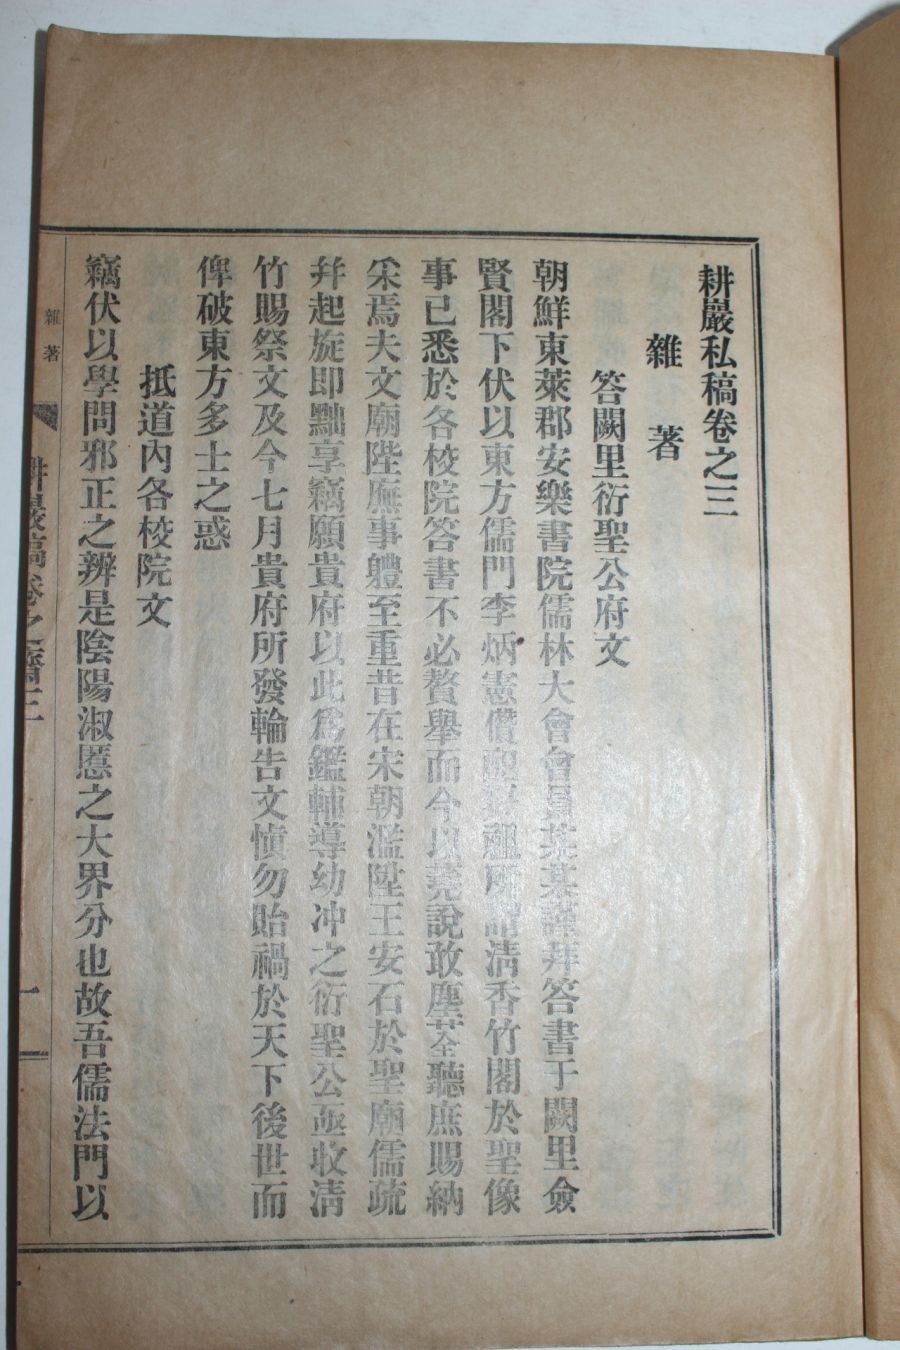 耕巖私稿卷之三
雜著
答闕里衍聖公府文
朝鮮東萊郡安樂書院儒林大會會員某某謹拜答書于闕里僉
賢閣下伏以東方儒門李炳憲僭設所謂淸香竹閣於聖像
事已悉於各校院答書不必贅舉而今以蕘說敢塵荃聽庶賜納
采焉夫文廟陞廡事軆至重昔在宋朝濫陞王安石於聖廟儒疏
幷起旋即黜享竊願貴府以此爲鑑輔導幼冲之衍聖公亟收淸
竹賜祭文及今七月貴府所發輪告文愼勿貽禍於天下後世而
俾破東方多士之惑
抵道內各校院文
竊伏以學問邪正之辨是陰陽淑慝之大界分也故吾儒法門以
雜著
一